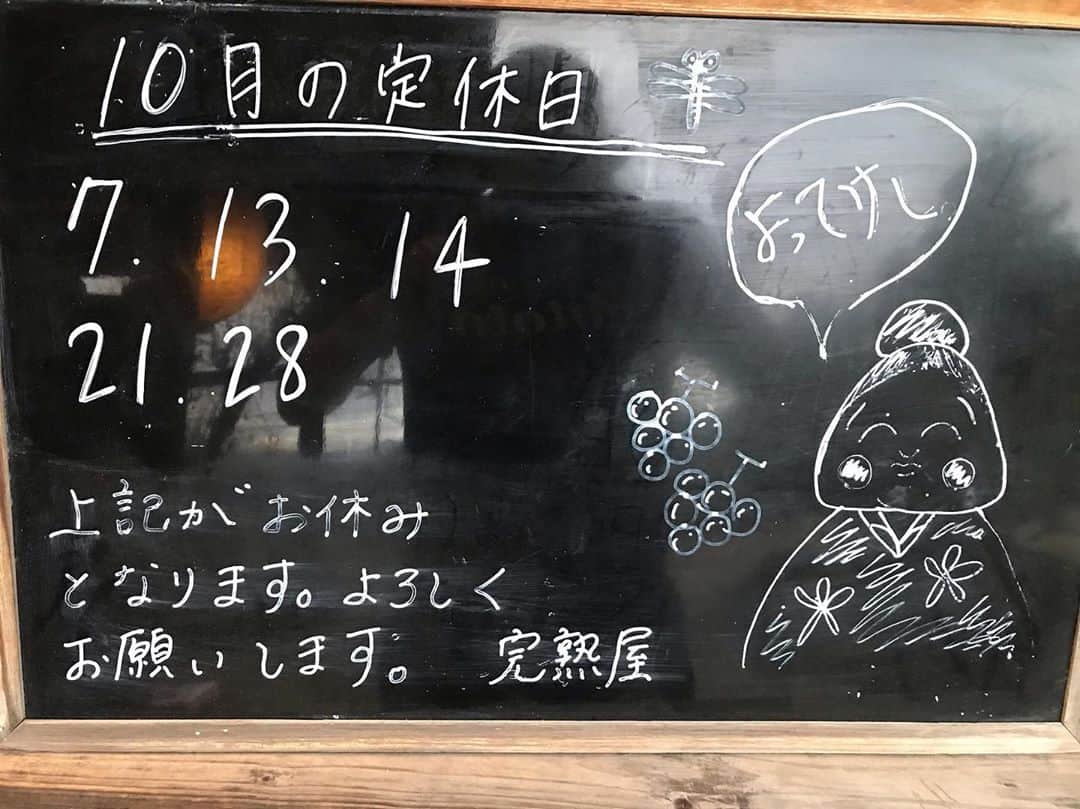 10月の定休日
よってけし
7. 13. 14
21. 28
上記がお休み
となります。よろしく
お願いします。 完熟屋